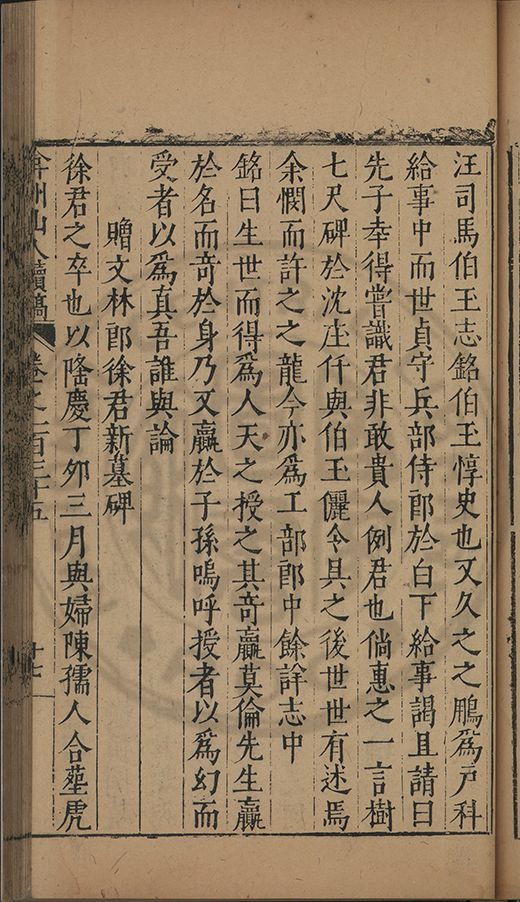 汪司馬伯玉志銘伯玉惇史也又久之之鵬為戶科
給事中而世貞守兵部侍郎於白下給事謁且請曰
先子幸得嘗識君非敢貴人例君也倘惠之一言樹
七尺碑於沈庄仟與伯玉儷令具之後世世有述焉
余憫而許之之龍今亦為工部郎中餘詳志中
銘曰生世而得為人天之授之其竒贏莫倫先生贏
於名而竒於身乃又贏於子孫嗚呼授者以為幻而
受者以為真吾誰與論
贈文林郎徐君新墓碑
徐君之卒也以隆慶丁卯三月與婦陳孺人合塟虎
弇州山人續稿 卷之一百三十五 十七